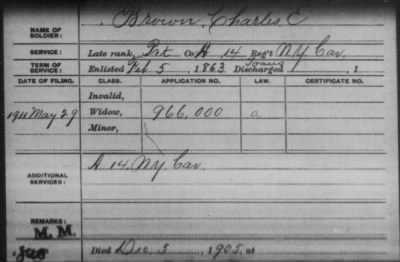 NAME OF SOLDIER: Brown, Charles E
SERVICE: Late rank, Prt Co. H, 14 Reg't N.Y. Cav.
TERM OF SERVICE: Enlisted Feb 5, 1863 Discharged , 1
DATE OF FILING. CLASS. APPLICATION NO. LAW. CERTIFICATE NO.
Invalid,
1911 May 29 Widow, 966,000 a
Minor,
ADDITIONAL SERVICES: A. 14 N.Y. Cav.
REMARKS:
M. M.
Died Dec 5, 1905, at